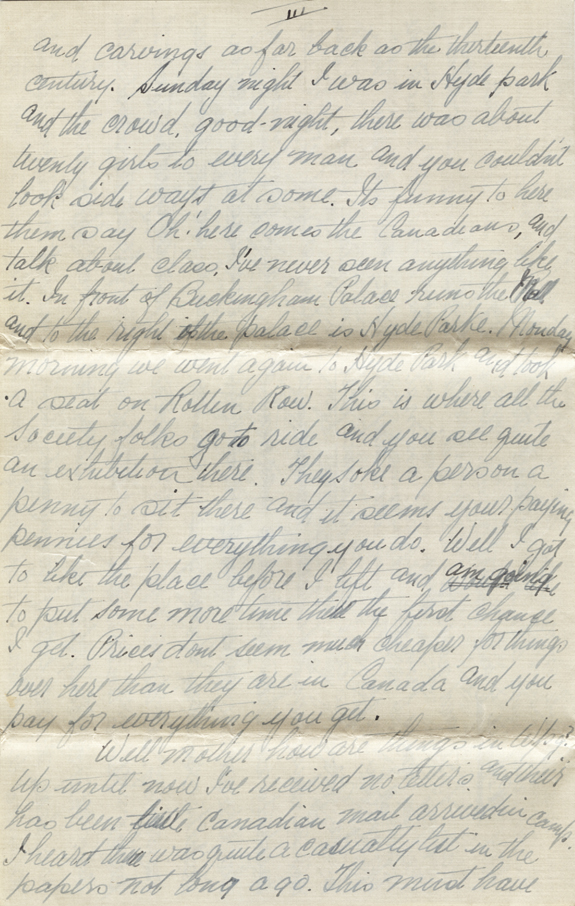 III
and carvings as far back as the thirteenth
century. Sunday night I was in Hyde park
and the crowd, good-night, there was about
twenty girls to every man and you couldn't
look side ways at some. Its funny to here
them say Oh! here comes the Canadians, and
talk about class, I've never seen anything like
it. In front of Buckingham Palace runs the Mall
and to the right of the palace is Hyde Parke. Monday
morning we went again to Hyde Park and took
a seat on Rotten Row. This is where all the
Society folks go to ride and you see quite
an exhibition there. They soke a person a
penny to sit there and it seems your paying
pennies for everything you do. Well I got
to like the place before I left and am going
to put some more time there the first chance
I get. Prices dont seem much cheaper for things
over here than they are in Canada and you
pay for everything you get.
Well mother how are things in
Up until now I've received no letters and their
has been little Canadian mail arrived in camp.
I heard there was quite a casualty list in the
papers not long ago. This must have